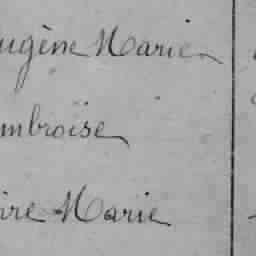 ugène Marie
mbroise
ire Marie